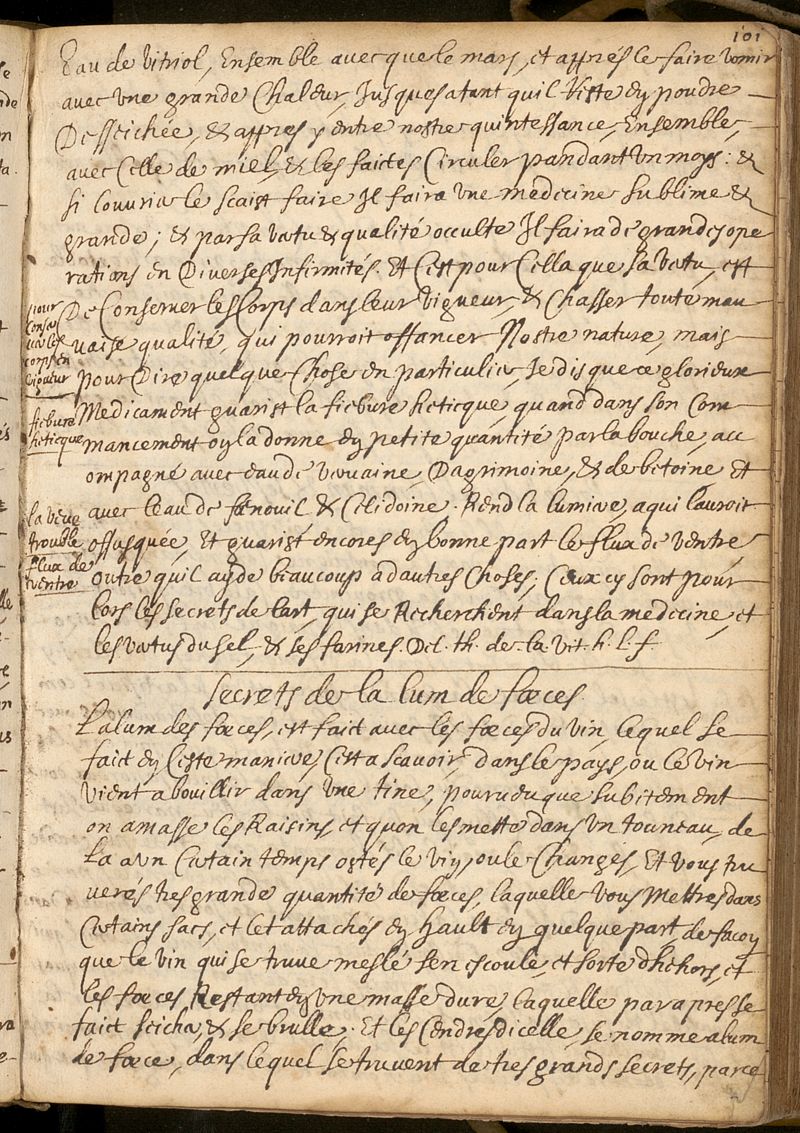 101
Eau de vitriol, Ensemble avecque le mars, et apprés le faire vomir
avec une grande Chaleur, Jusques a tant quil Reste en poudre
Desseichée, & appres y entre nostre quintessance, Ensemble,
avec Celle de miel, & les faictes Circuler pandant un moys: &
si louvrier le scaist faire Il faira une medecine sublime &
grande; & par sa vertu & qualité occulte Il faira de grandes ope
rations en Diverses Infirmités. Et C'est pour Cella que sa vertu, est
De Conserver les Corps dans leur vigueur, & Chasser toute mau
vaise qualité, qui pourroit offancer Nostre nature, mais
pour Dire quelque Chose en particulier, Je dis que ce glorieux
Medicament guarist la fiebure heticque, quand dans son Com
mancement on la donne en petite quantité par la bouche, acc
ompagné avec eau de vervaine, Dagrimoine, & de betoine, Et
avec leau de fœnouil & Celidoine. Rend la lumiere, a qui lauroit
offusquée, Et guarist encores en bonne part le flux de ventre
outre quil ayde beaucoup a dautres Choses; Ceux cy sont pour
lors les secrets de lart, qui se Recherchent dans la medecine, et
les vertus du sel, & ses farines. Del. th. de la vit. h. L. f.
pour
Conser
ver les
corps en
vigueur
fiebure
heticque
la veue
trouble
flux de
ventre
Secrets de la lum de fœces
Lalum des fœces, est faict avec les fœces du vin, lequel se
faict en Ceste maniere, Cest a scavoir, dans le pays, ou le vin
vient a bouillir dans une tine, pourveu que subitement
on amasse les Raisins, et quon les mette dans un tonneau, de
La a un Certain temps ostés le vin, ou le Changés, Et vous tru
verés tres grande quantité de fœces, laquelle vous Mettres dans
Certains sacs, et let attachés en hault en quelque part, de facon
que le vin qui se truve meslé sen escoule, et sorte dhehors, et
les fœces Restant en une masse dure, laquelle par apres se
faict seicher, & se brulle. Et les Cendres dicelle, se nomme alum
de fœce, dans lequel se truvent de tres grands secrets, parce